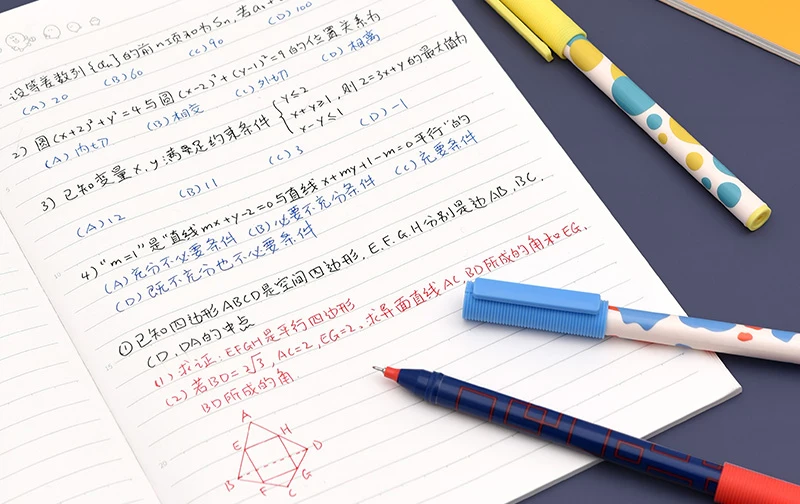 设等差数列{an}的前n项和为Sn,若a1+
(A) 20 (B) 60 (C) 90 (D) 100
2) 圆(x+2)²+y²=4与圆(x-2)²+(y-1)²=9的位置关系为
(A) 内切 (B) 相交 (C) 外切 (D) 相离
3) 已知变量x,y满足约束条件 { y≤2 x+y≥1 x-y≤1 ,则z=3x+y的最大值为
(A) 12 (B) 11 (C) 3 (D) -1
4) "m=1"是"直线mx+y-2=0与直线x+my+1-m=0平行"的
(A) 充分不必要条件 (B) 必要不充分条件 (C) 充要条件
(D) 既不充分也不必要条件
① 已知四边形ABCD是空间四边形,E.F.G.H分别是边AB,BC,
CD,DA的中点
(1) 求证:EFGH是平行四边形
(2) 若BD=2√3,AC=2,EG=2,求异面直线AC,BD所成的角和EG,
BD所成的角
A
E H
B D
F G
C